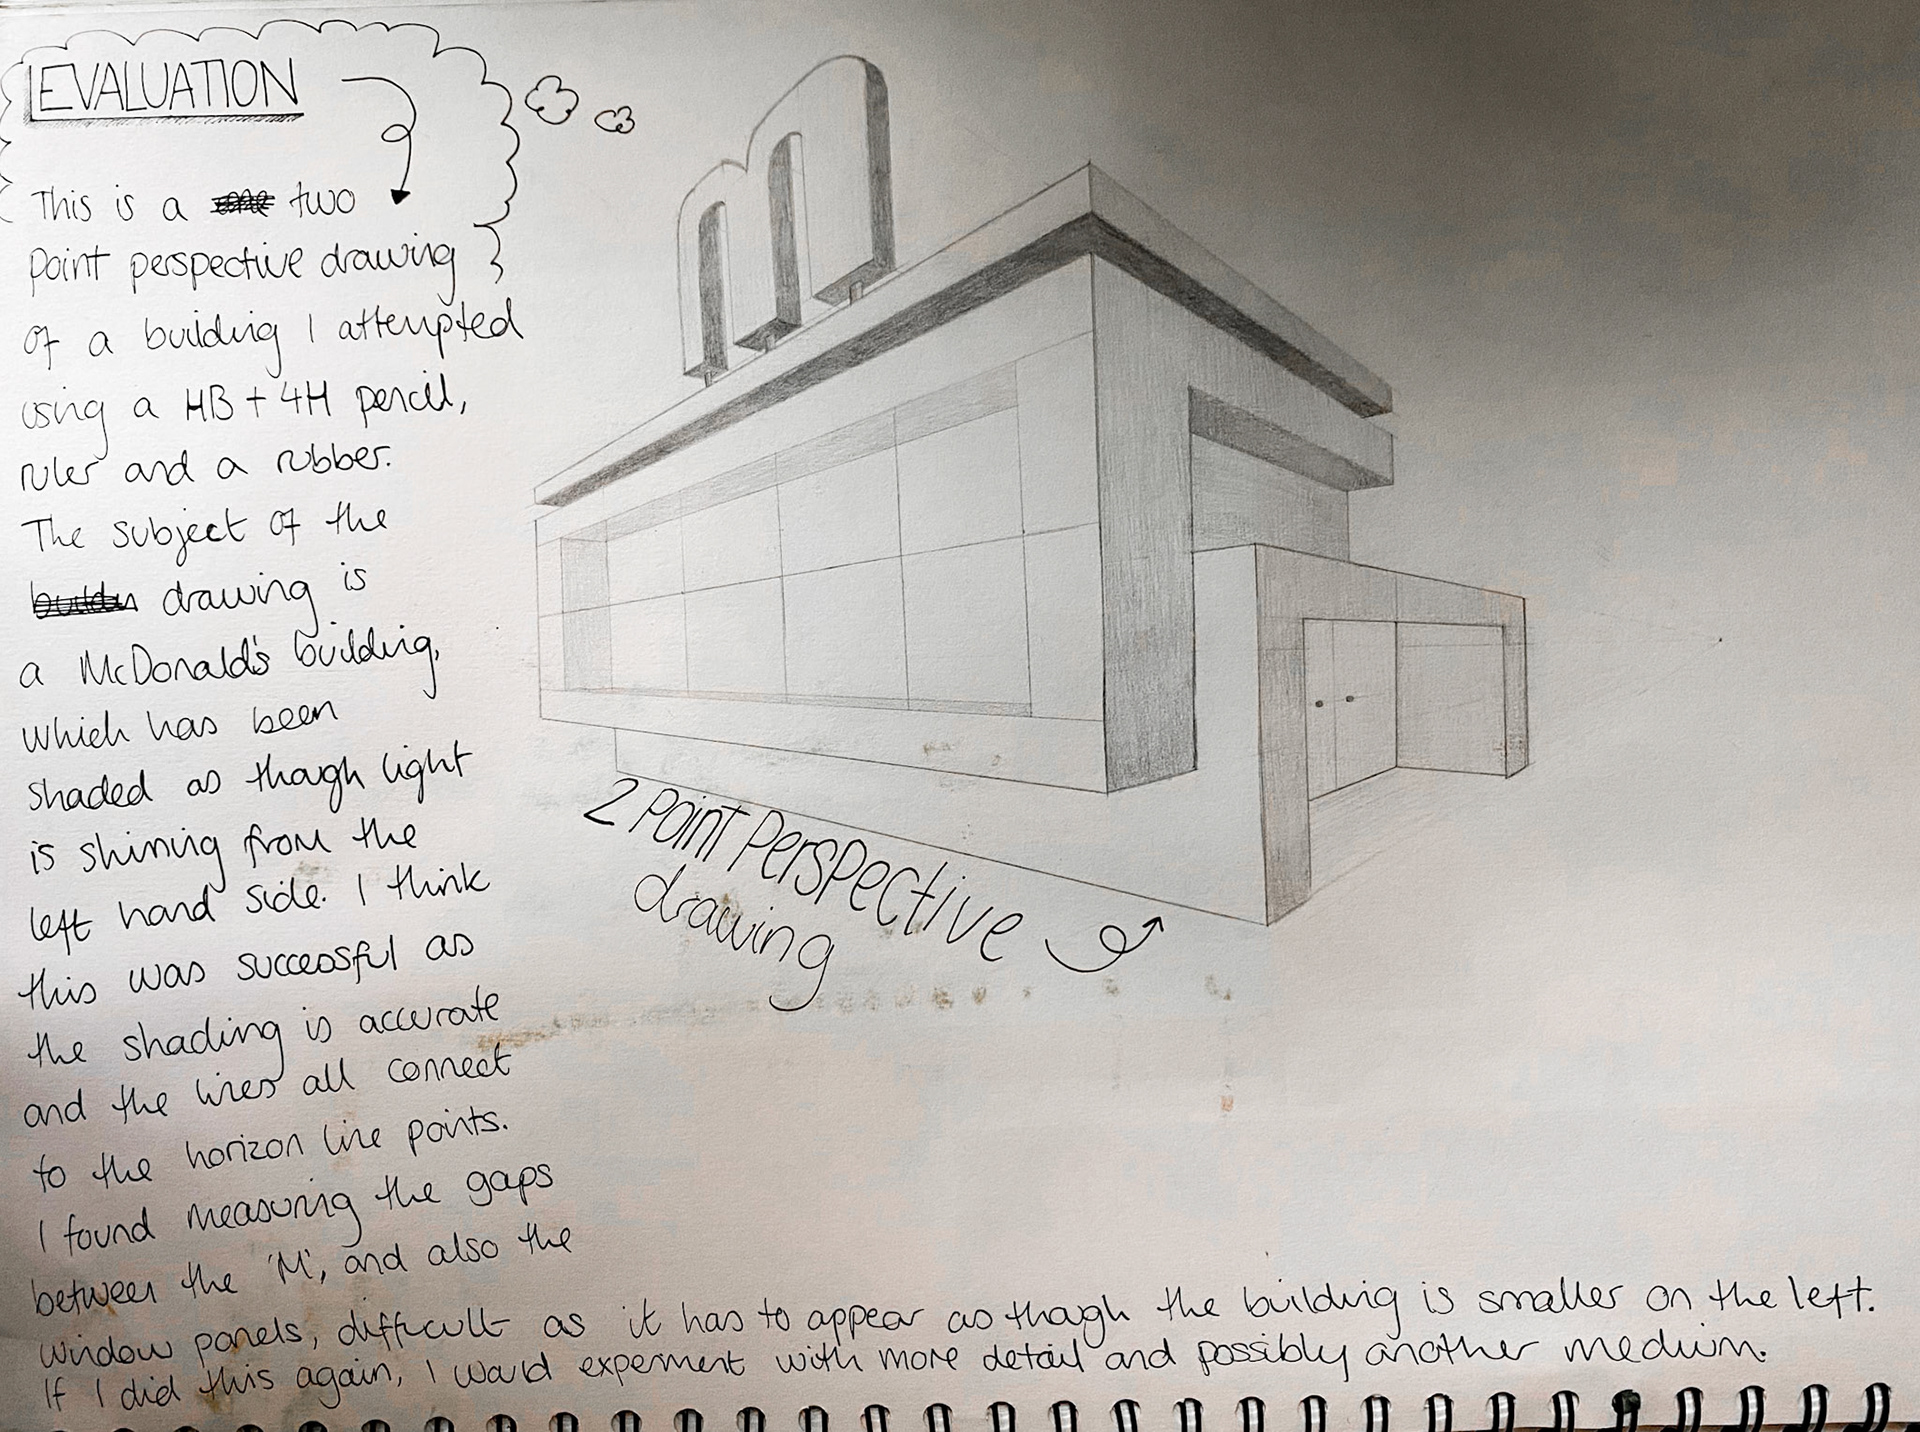 EVALUATION
This is a two
Point perspective drawing
of a building I attempted
using a HB + 4H pencil,
ruler and a rubber.
The subject of the
drawing is
a McDonald's building,
which has been
shaded as though light
is shining from the
left hand side. I think
this was successful as
the shading is accurate
and the lines all connect
to the horizon line points.
I found measuring the gaps
between the 'M', and also the
window panels, difficult as it has to appear as though the building is smaller on the left.
If I did this again, I would experment with more detail and possibly another medium.
2 Point Perspective
drawing
m